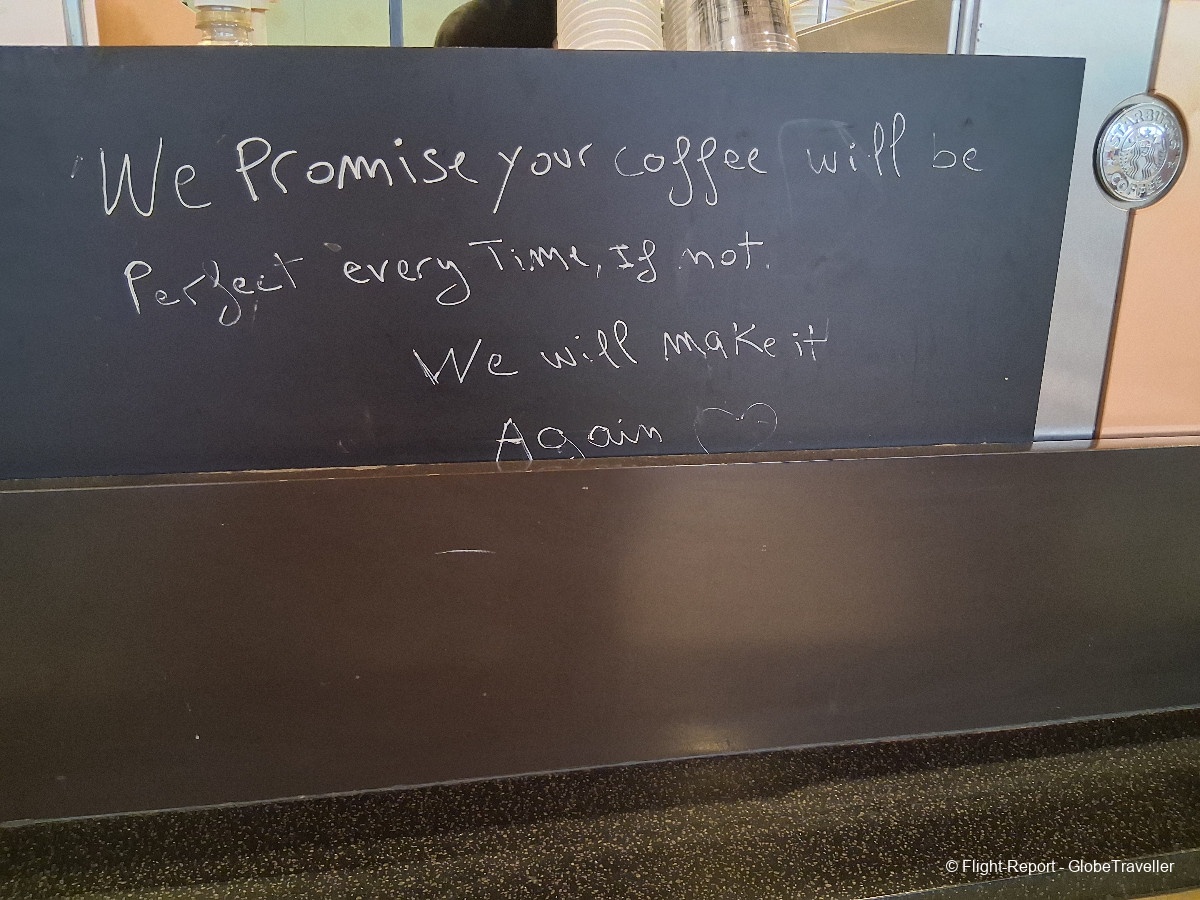 We Promise your coffee will be
Perfect every Time, If not.
We will make it
Again
STARBUCKS
COFFEE
© Flight-Report - GlobeTraveller